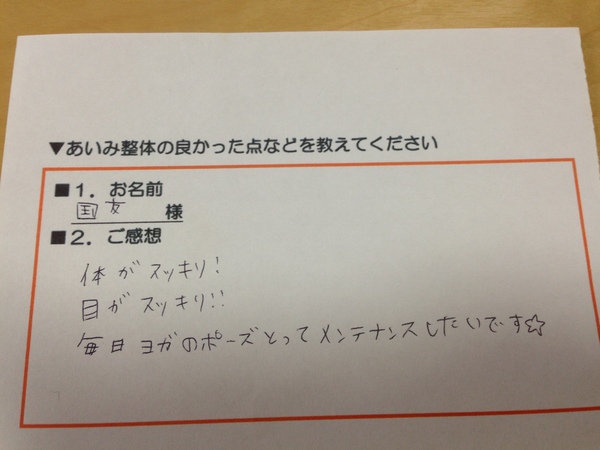 ▼あいみ整体の良かった点などを教えてください
■1．お名前
国友 様
■2．ご感想
体がスッキリ！
目がスッキリ!!
毎日ヨガのポーズとってメンテナンスしたいです☆